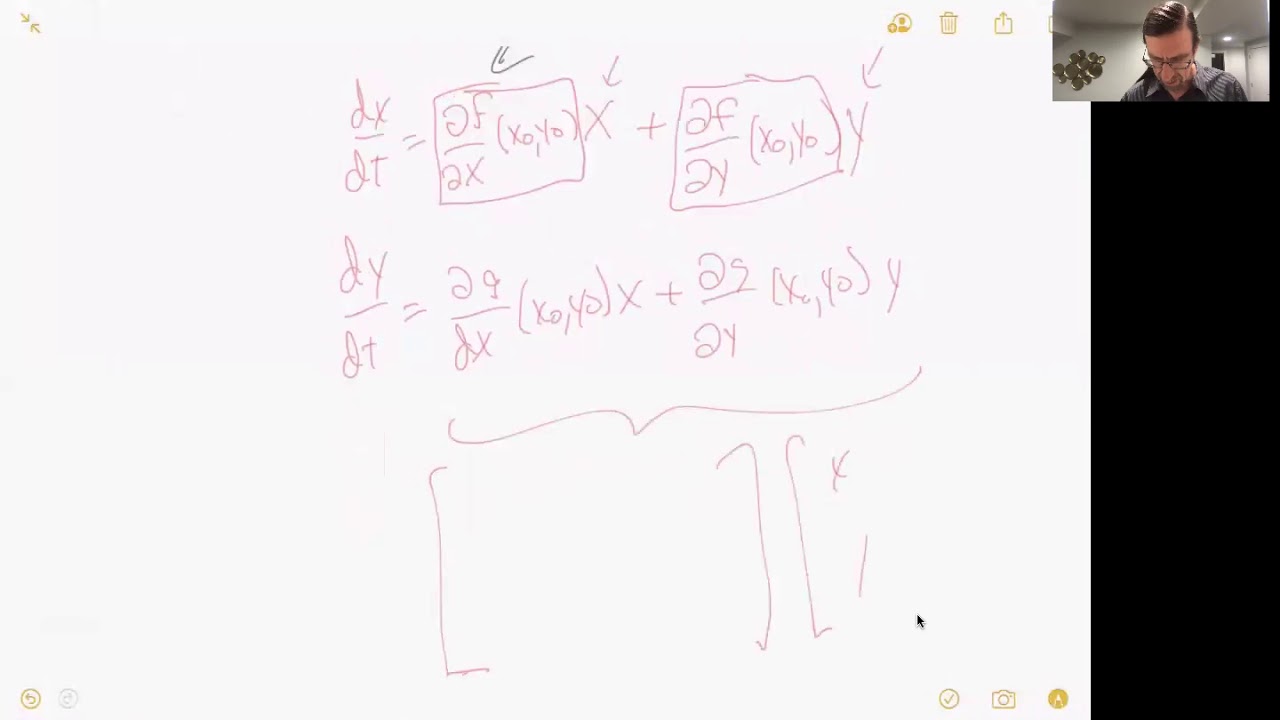 dx/dt = ∂f/∂x (x₀,y₀) X + ∂f/∂y (x₀,y₀) Y
dy/dt = ∂g/dx (x₀,y₀) X + ∂g/∂y (x₀,y₀) y
[ ] [ x